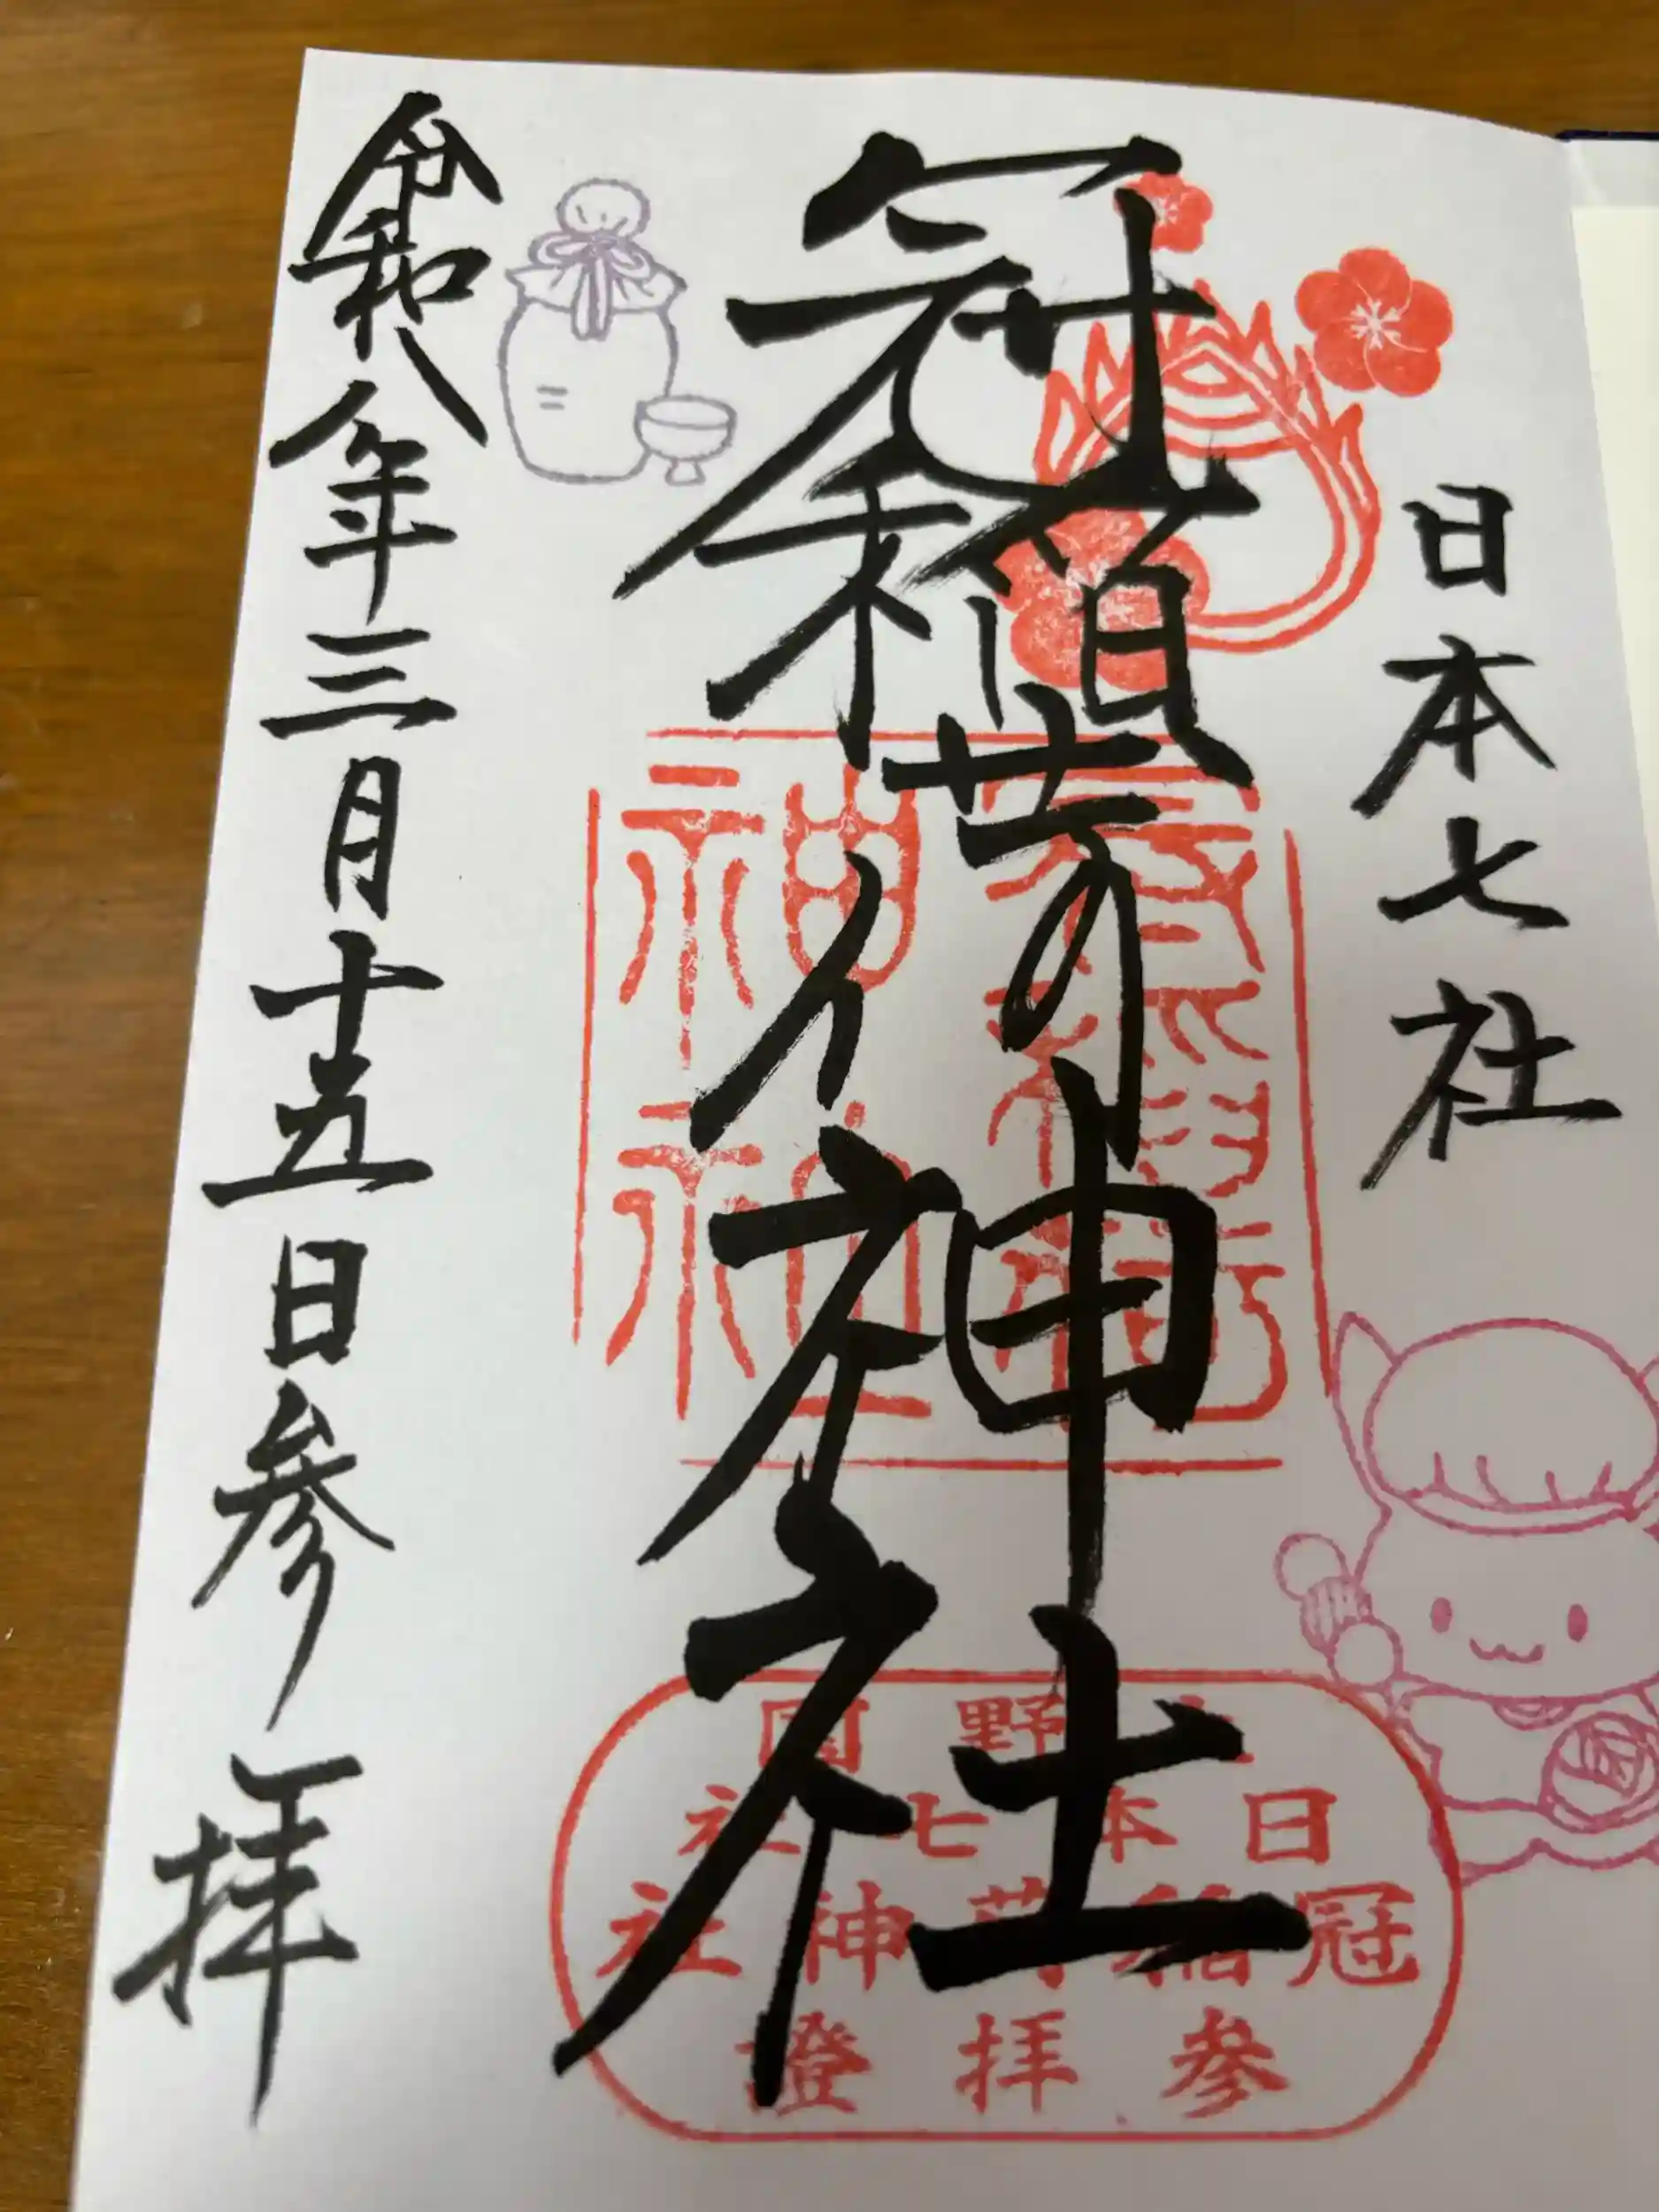 日本七社
冠稲荷神社
令和八年三月十五日参拝
上野国
日本七社
冠稲荷神社
參拝證